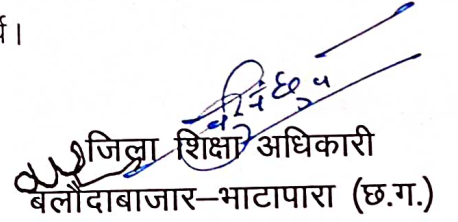 र्य।
जिला शिक्षा अधिकारी
बलौदाबाजार–भाटापारा (छ.ग.)